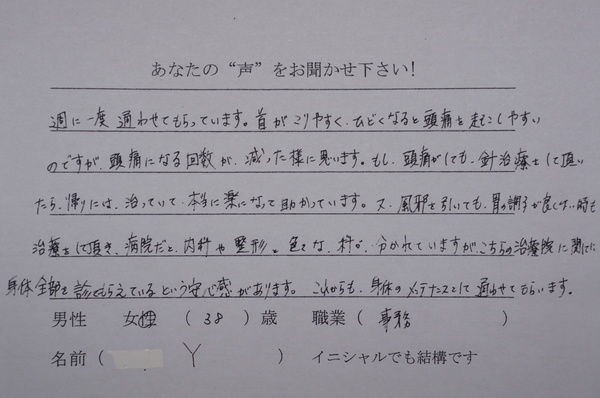 あなたの“声”をお聞かせ下さい!
週に一度 通わせてもらっています。首がこりやすく、ひどくなると頭痛を起こしやすい
のですが、頭痛になる回数が、減った様に思います。もし、頭痛がしても、針治療をして頂い
たら、帰りには、治っていて、本当に楽になって助かっています。又、風邪を引いても、胃の調子が良くない時も
治療をして頂き、病院だと、内科や整形と色々な、科に、分かれていますが、こちらの治療院に関しては
身体全部を診てもらえているという安心感があります。これからも、身体のメンテナンスとして通わせてもらいます。
男性 女性 ( 38 ) 歳 職業 ( 事務 )
名前 ( Y ) イニシャルでも結構です